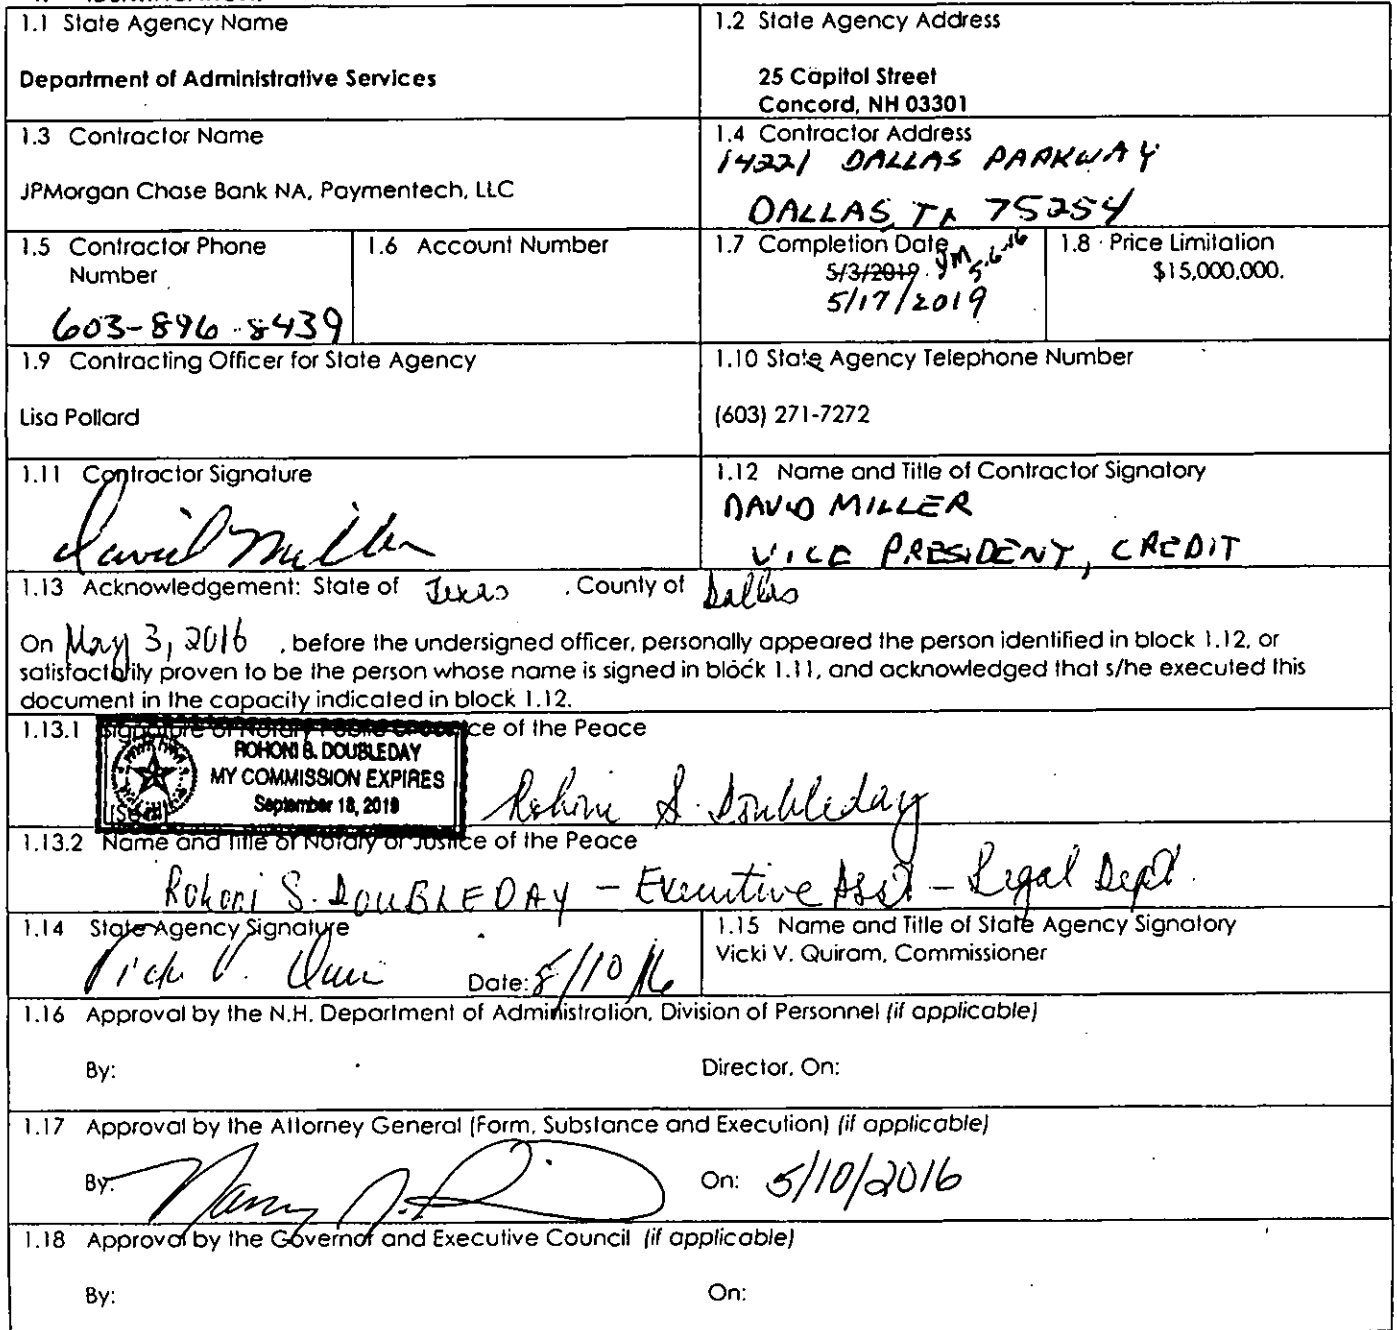 1.1 State Agency Name
Department of Administrative Services
1.2 State Agency Address
25 Capitol Street
Concord, NH 03301
1.3 Contractor Name
JPMorgan Chase Bank NA, Paymentech, LLC
1.4 Contractor Address
14221 DALLAS PARKWAY
DALLAS, TX 75254
1.5 Contractor Phone
Number
603-896-8439
1.6 Account Number
1.7 Completion Date
5/3/2019 JM 5-6-16
5/17/2019
1.8 Price Limitation
$15,000,000.
1.9 Contracting Officer for State Agency
Lisa Pollard
1.10 State Agency Telephone Number
(603) 271-7272
1.11 Contractor Signature
David Miller
1.12 Name and Title of Contractor Signatory
DAVID MILLER
VICE PRESIDENT, CREDIT
1.13 Acknowledgement: State of Texas , County of Dallas
On May 3, 2016 , before the undersigned officer, personally appeared the person identified in block 1.12, or
satisfactorily proven to be the person whose name is signed in block 1.11, and acknowledged that s/he executed this
document in the capacity indicated in block 1.12.
1.13.1 Signature of Notary Public or Justice of the Peace
ROHONI S. DOUBLEDAY
MY COMMISSION EXPIRES
September 18, 2019
[Seal]
Rohoni S. Doubleday
1.13.2 Name and Title of Notary or Justice of the Peace
Rohoni S. DOUBLEDAY - Executive Ass't - Legal Dept.
1.14 State Agency Signature
Date: 5/10/16
1.15 Name and Title of State Agency Signatory
Vicki V. Quiram, Commissioner
1.16 Approval by the N.H. Department of Administration, Division of Personnel (if applicable)
By:
Director, On:
1.17 Approval by the Attorney General (Form, Substance and Execution) (if applicable)
By:
On: 5/10/2016
1.18 Approval by the Governor and Executive Council (if applicable)
By:
On: